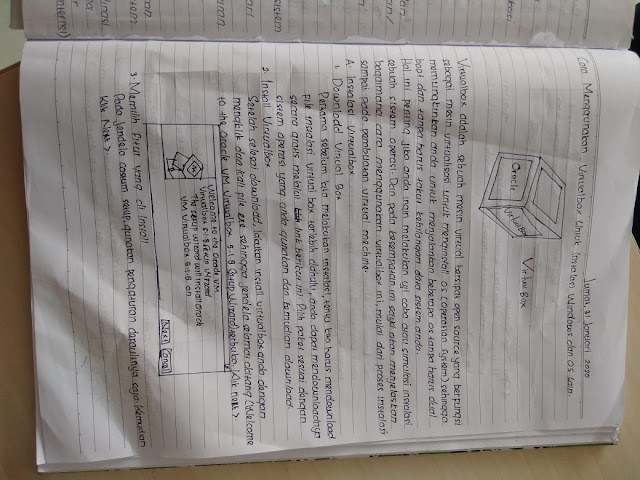 Jumat, 31 Januari 2020
Cara Menggunakan Virtualbox Untuk Instalasi Windows dan OS lain.
Oracle
VirtualBox
Virtual Box
Virtualbox adalah sebuah mesin virtual bersipat open source yang berfungsi
sebagai mesin virtualisasi untuk menginstall OS (operation System) sehingga
memungkinkan anda untuk menjalankan beberapa os tanpa harus dual
boot dan tanpa harus takut kehilangan data sistem anda.
Hal ini penting jika anda ingin melakukan uji coba atau simulasi instalasi
sebuah sistem operasi. Dan pada kesempatan ini saya akan menjelaskan
bagaimana cara menggunakan virtualbox ini, mulai dari proses instalasi
sampai pada pembuatan virtual machine.
A. Instalasi Virtualbox
1. Download Virtual Box
Pertama sebelum bisa melakukan instalasi, tentu kita harus mendownload
file instalasi virtual box terlebih dahulu, anda dapat mendownloadnya
secara gratis melalui link berikut ini. Pilih paket sesuai dengan
sistem operasi yang anda gunakan dan kemudian download.
2. Install Virtualbox
Setelah selesai download, lakukan install virtualbox anda dengan
mengklik dua kali file exe sehingga jendela selamat datang (Welcome
to the oracle VM Virtualbox 5.1.8 Setup Wizard) terbuka. Klik next >
Welcome to the Oracle VM
Virtualbox 5.1.8 Setup Wizard
The setup wizard will install oracle
VM Virtualbox 5.1.8 on
Next
Cancel
3. Memilih Fitur Yang di Install
Pada jendela costum setup, gunakan pengaturan defaultnya saja kemudian
klik Next >.